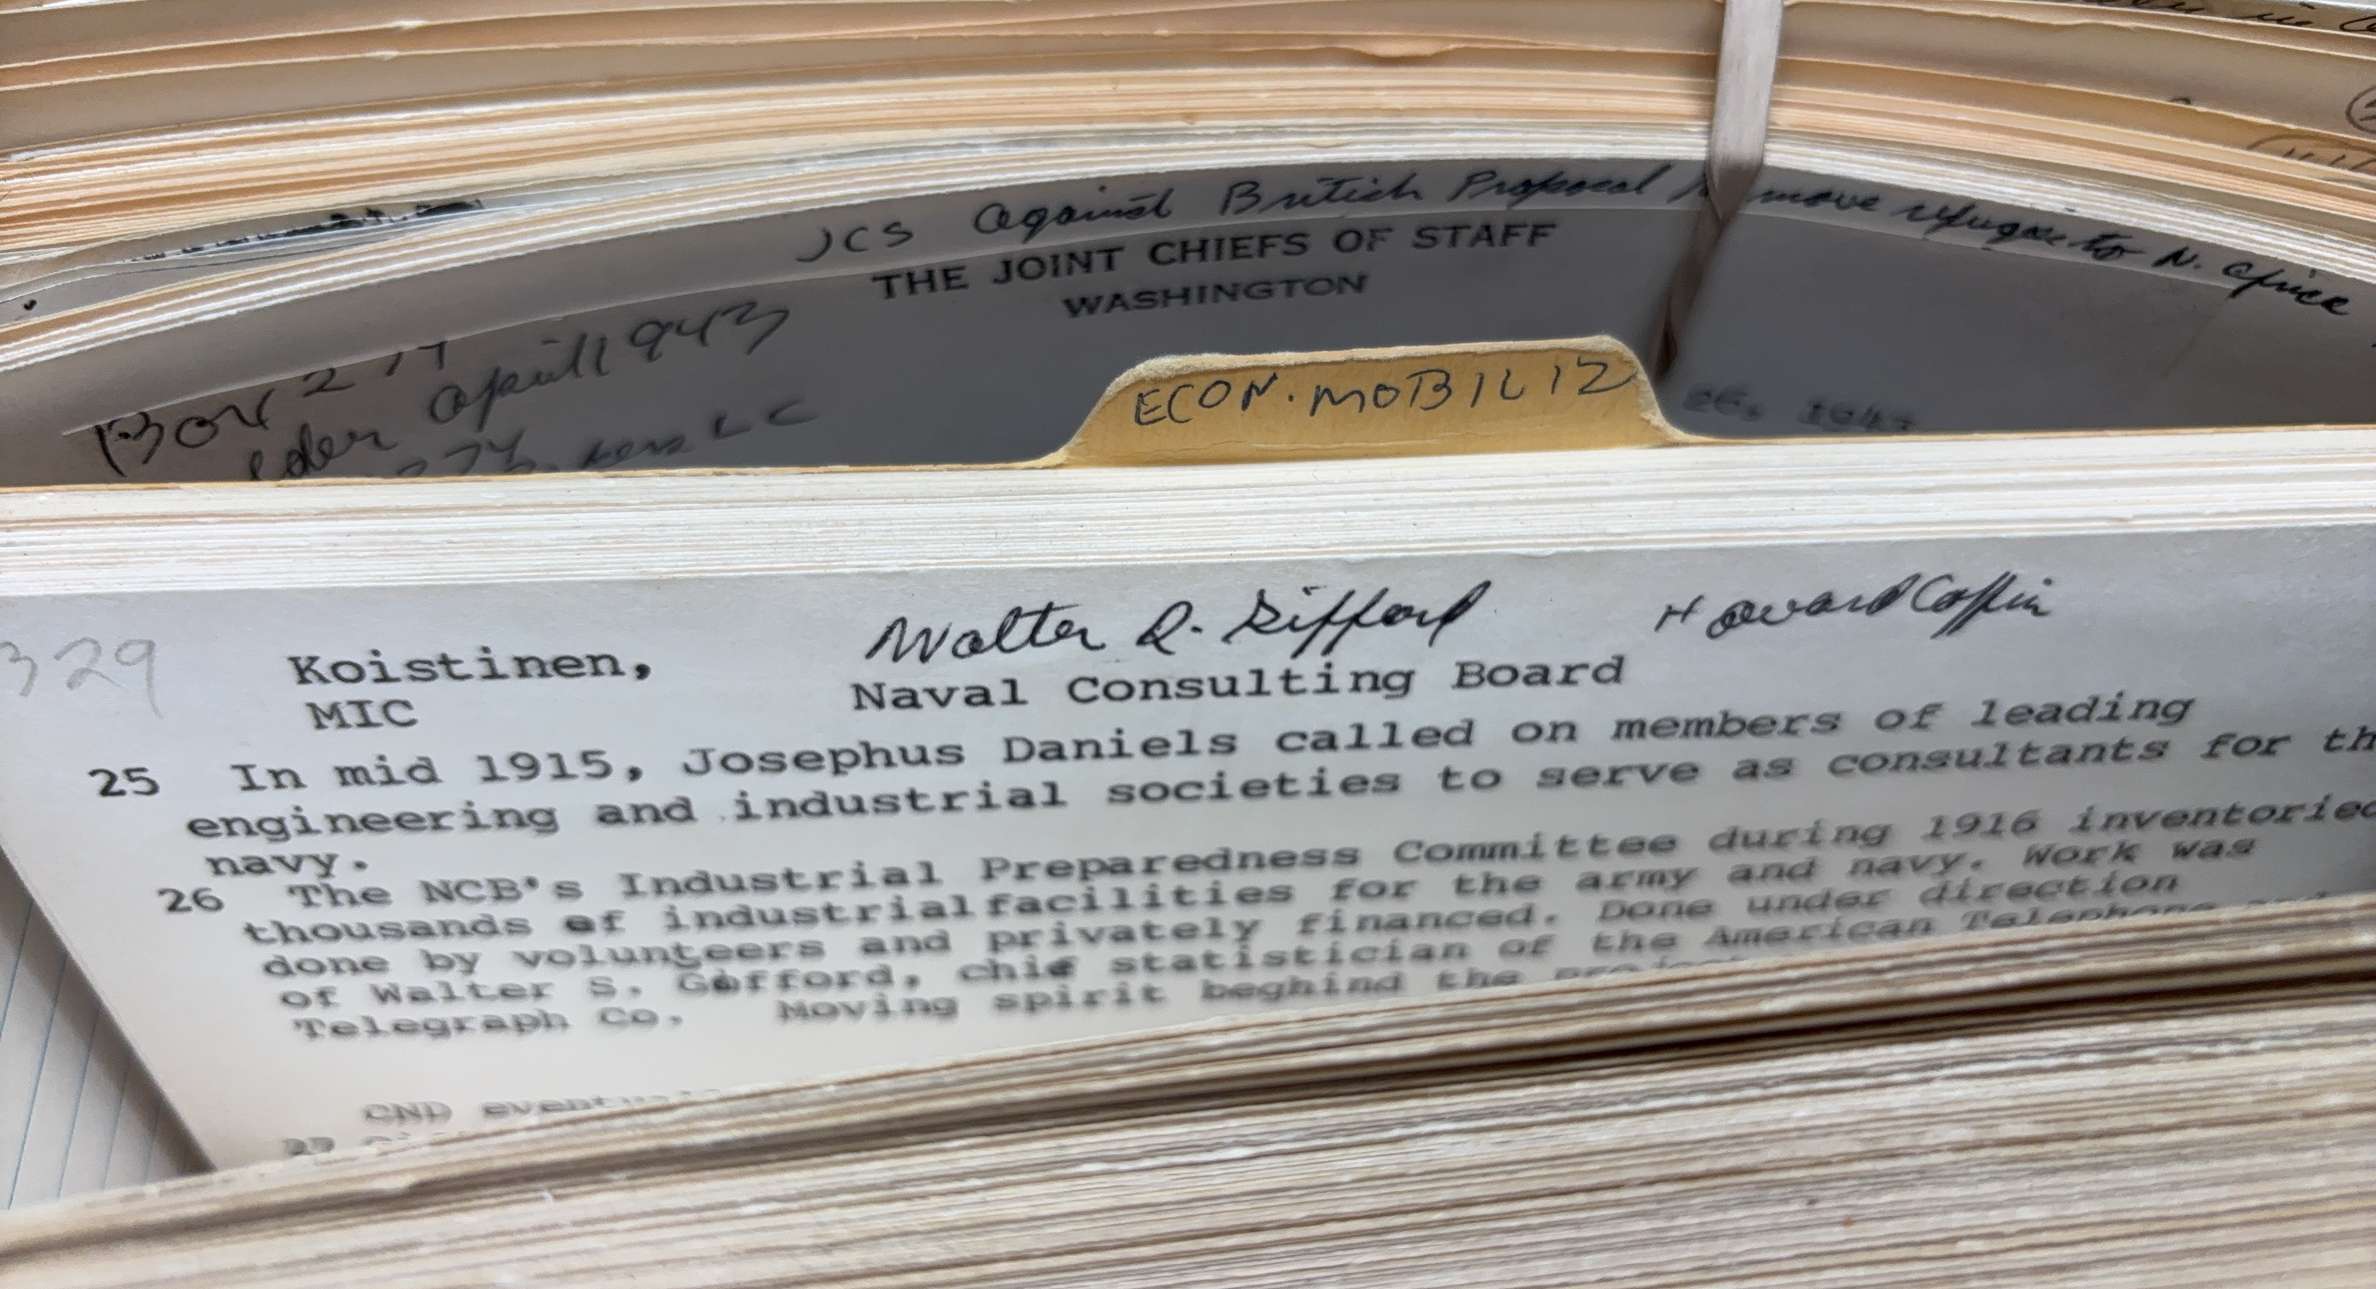 JCS against British Proposal move refugee to N. Africa
THE JOINT CHIEFS OF STAFF
WASHINGTON
Box 274
april 1943
LC
26, 194
ECON. MOBILIZ
329
Walter R. Gifford Howard Coffin
Koistinen, Naval Consulting Board
MIC
25 In mid 1915, Josephus Daniels called on members of leading
engineering and industrial societies to serve as consultants for th
navy.
26 The NCB's Industrial Preparedness Committee during 1916 inventoried
thousands of industrial facilities for the army and navy. Work was
done by volunteers and privately financed. Done under direction
of Walter S. Gifford, chief statistician of the American Telephone
Telegraph Co. Moving spirit beghind the project
CND